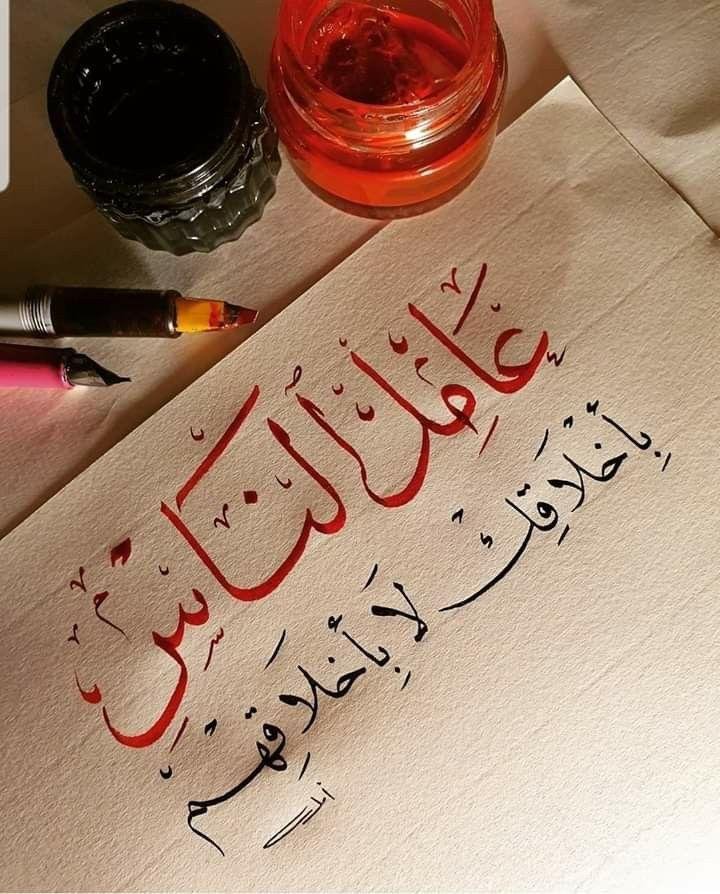 عَامِل النَّاسِ
بِأَخْلَاقِكْ لَا بِأَخلَاقِهُمْ